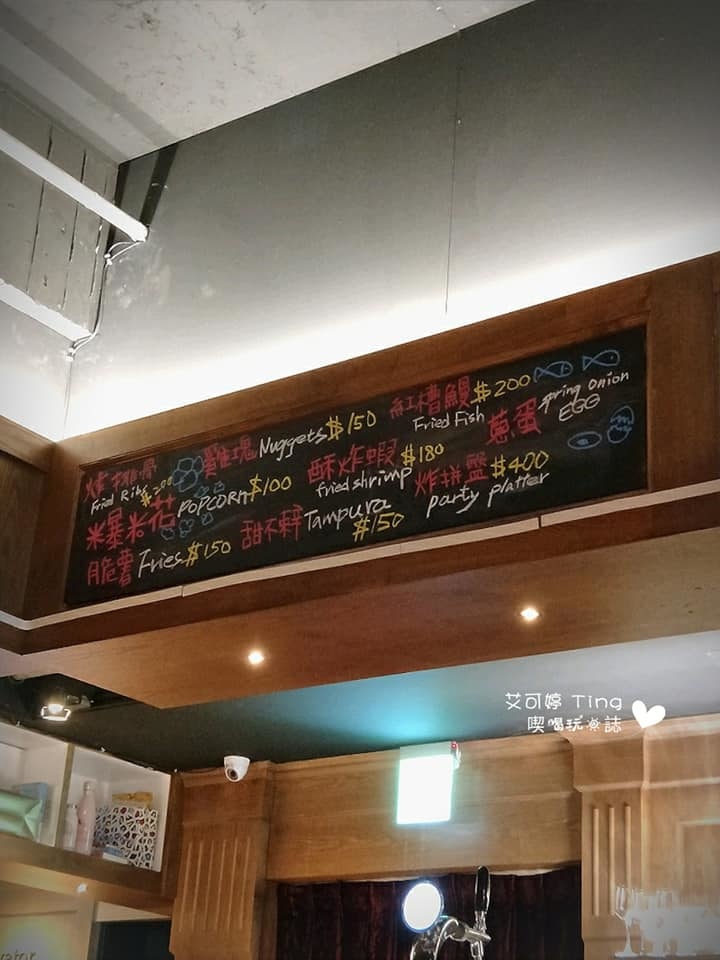 炸排骨
Fried Ribs $200
爆米花 POPCORN $100
脆薯 Fries $150
雞塊 Nuggets $150
酥炸蝦 $180
fried shrimp
甜不辣 Tampura
$150
紅糟鰻 $200
Fried Fish
蔥蛋 spring onion
EGG
炸拼盤 $400
party platter
艾可婷 Ting
喫喝玩樂誌